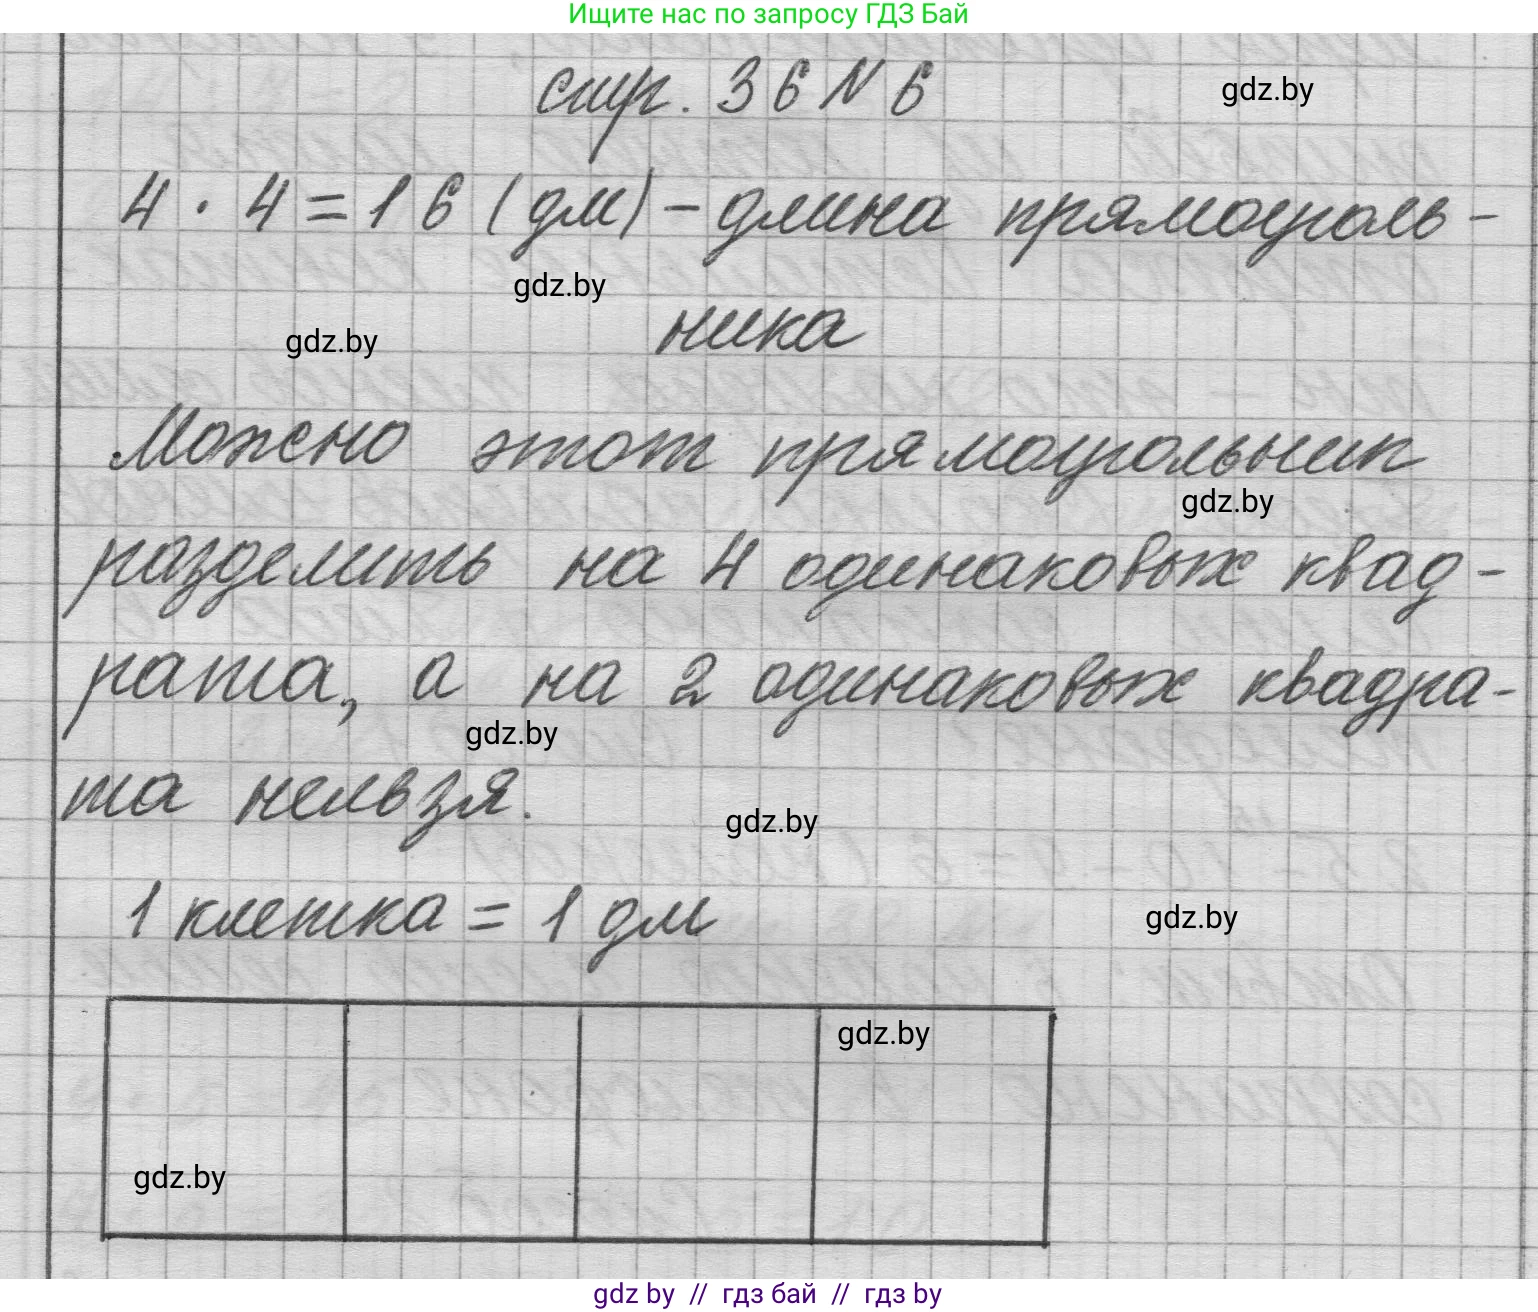 Ищите нас по запросу ГДЗ Бай
стр. 36 N 6
gdz.by
4 · 4 = 16 (дм) – длина прямоуголь-
gdz.by
ника
gdz.by
Можно этот прямоугольник
gdz.by
разделить на 4 одинаковых квад-
рата, а на 2 одинаковых квадра-
gdz.by
та нельзя.
gdz.by
1 клетка = 1 дм
gdz.by
gdz.by
gdz.by
gdz by // гдз бай // гдз by